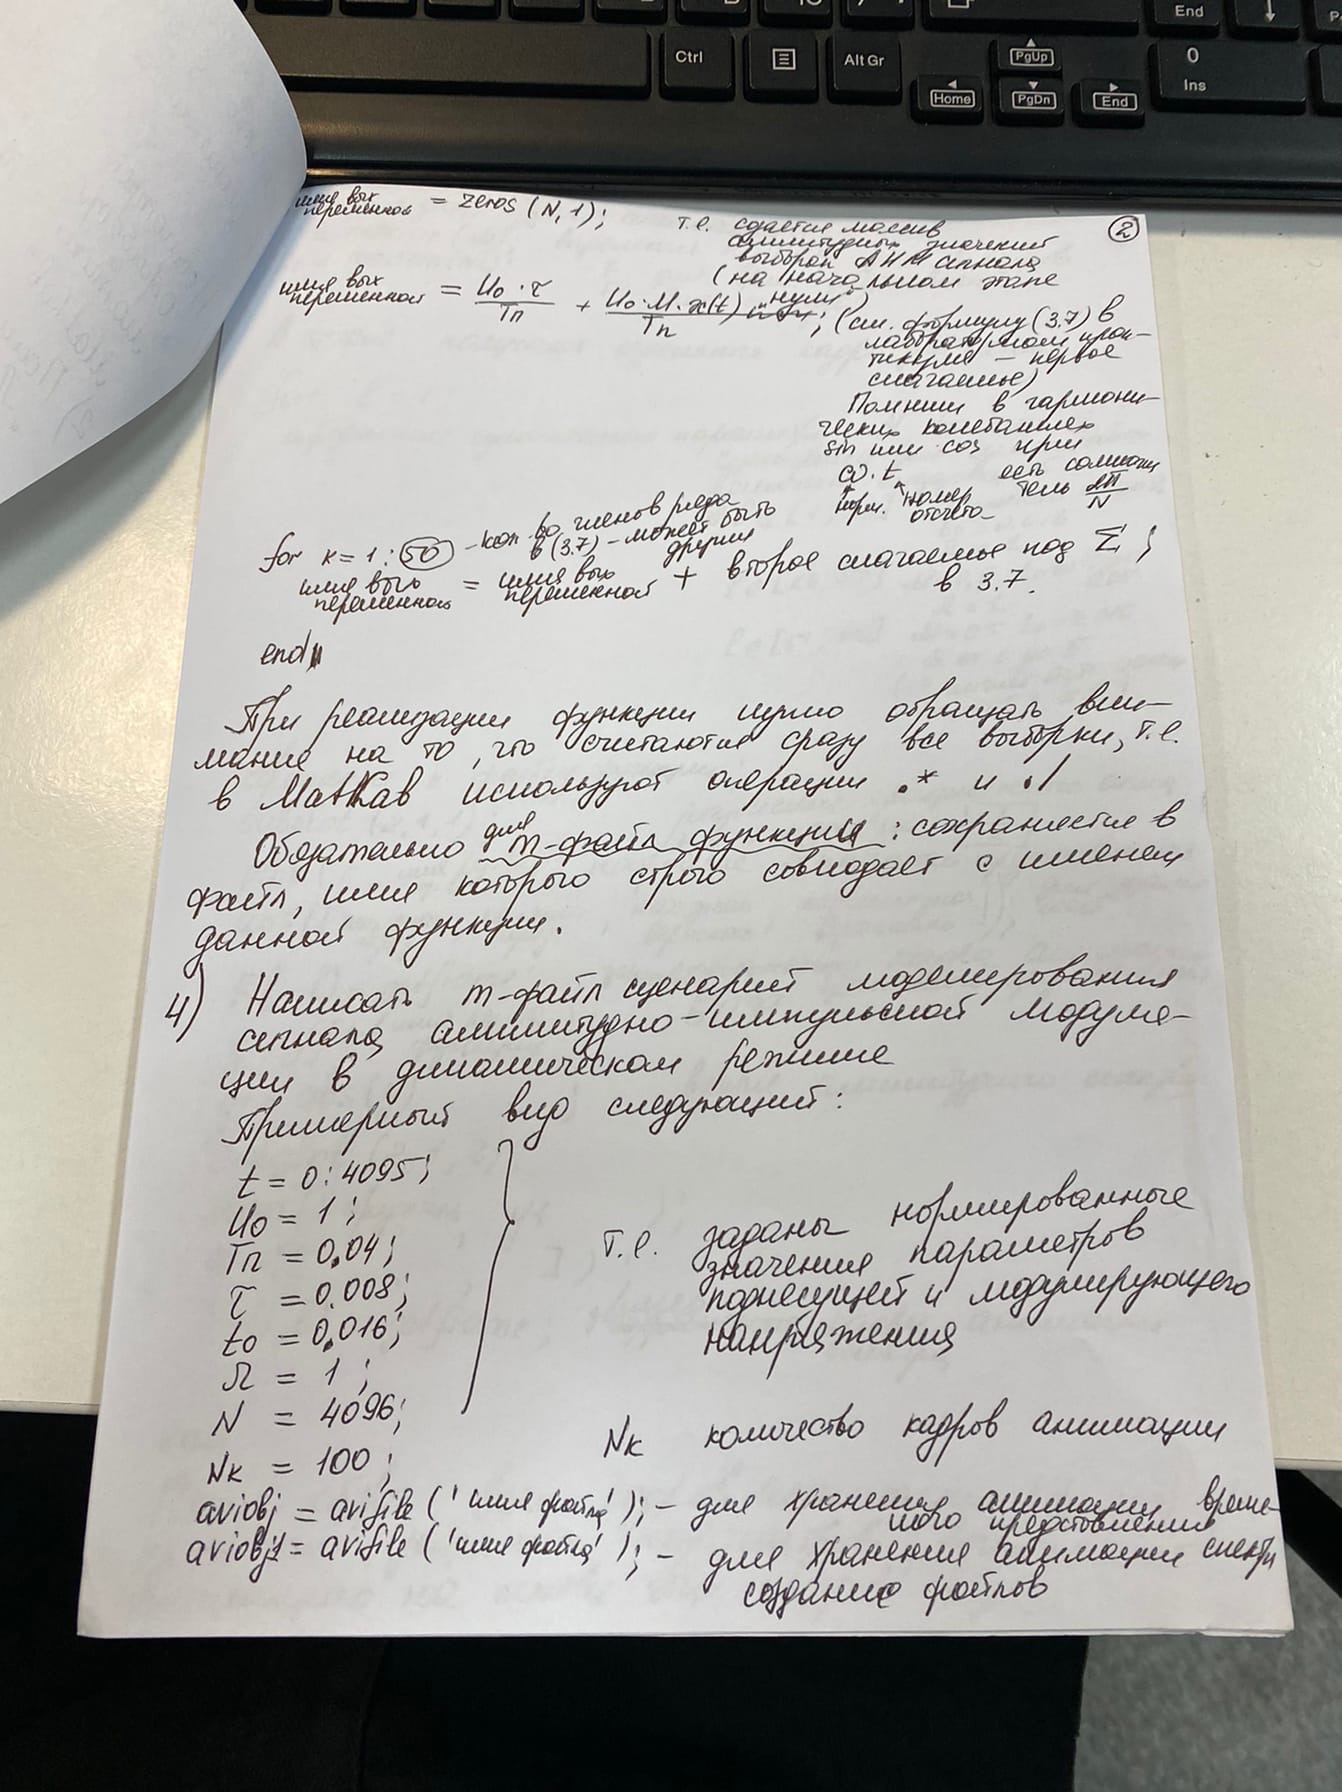 End
Ctrl
Alt Gr
PgUp
0
Ins
Home
PgDn
End
имя вых переменной = zeros (N, 1);
2
т.е. сдается массив
амплитудных значений
выборок АИМ сигнала
(на начальном этапе
"нули")
имя вых переменной = U₀·τ/Tп + U₀·M·x(t)/Tп ;
(см. формулу (3.7) в
лабораторном прак-
тикуме – первое
слагаемое)
Помним в гармони-
ческих колебаниях
sin или cos при
ω·t есть сомножи
тель 2π/N
норм. номер
отсчета
for k = 1 : 50 – кол-во членов ряда
в (3.7) – может быть
другим
имя вых переменной = имя вых переменной + второе слагаемое под Σ ;
в 3.7.
end
При реализации функции нужно обращать вни-
мание на то, что считаются сразу все выборки, т.е.
в MatLab используют операции .* и ./
Обязательно для m-файл функции : сохраняется в
файл, имя которого строго совпадает с именем
данной функции.
4) Написать m-файл сценарий моделирования
сигнала амплитудно-импульсной модуля-
ции в динамическом режиме
Примерный вид следующий:
t = 0:4095;
U₀ = 1;
Tп = 0.04;
τ = 0.008;
t₀ = 0.016;
Ω = 1;
N = 4096;
т.е. заданы нормированные
значения параметров
поднесущей и модулирующего
напряжения
Nк = 100;
Nк количество кадров анимации
aviobj = avifile ('имя файла'); – для хранения анимации време-
ного представления
aviobj1 = avifile ('имя файла'); – для хранения анимации спектр
создание файлов